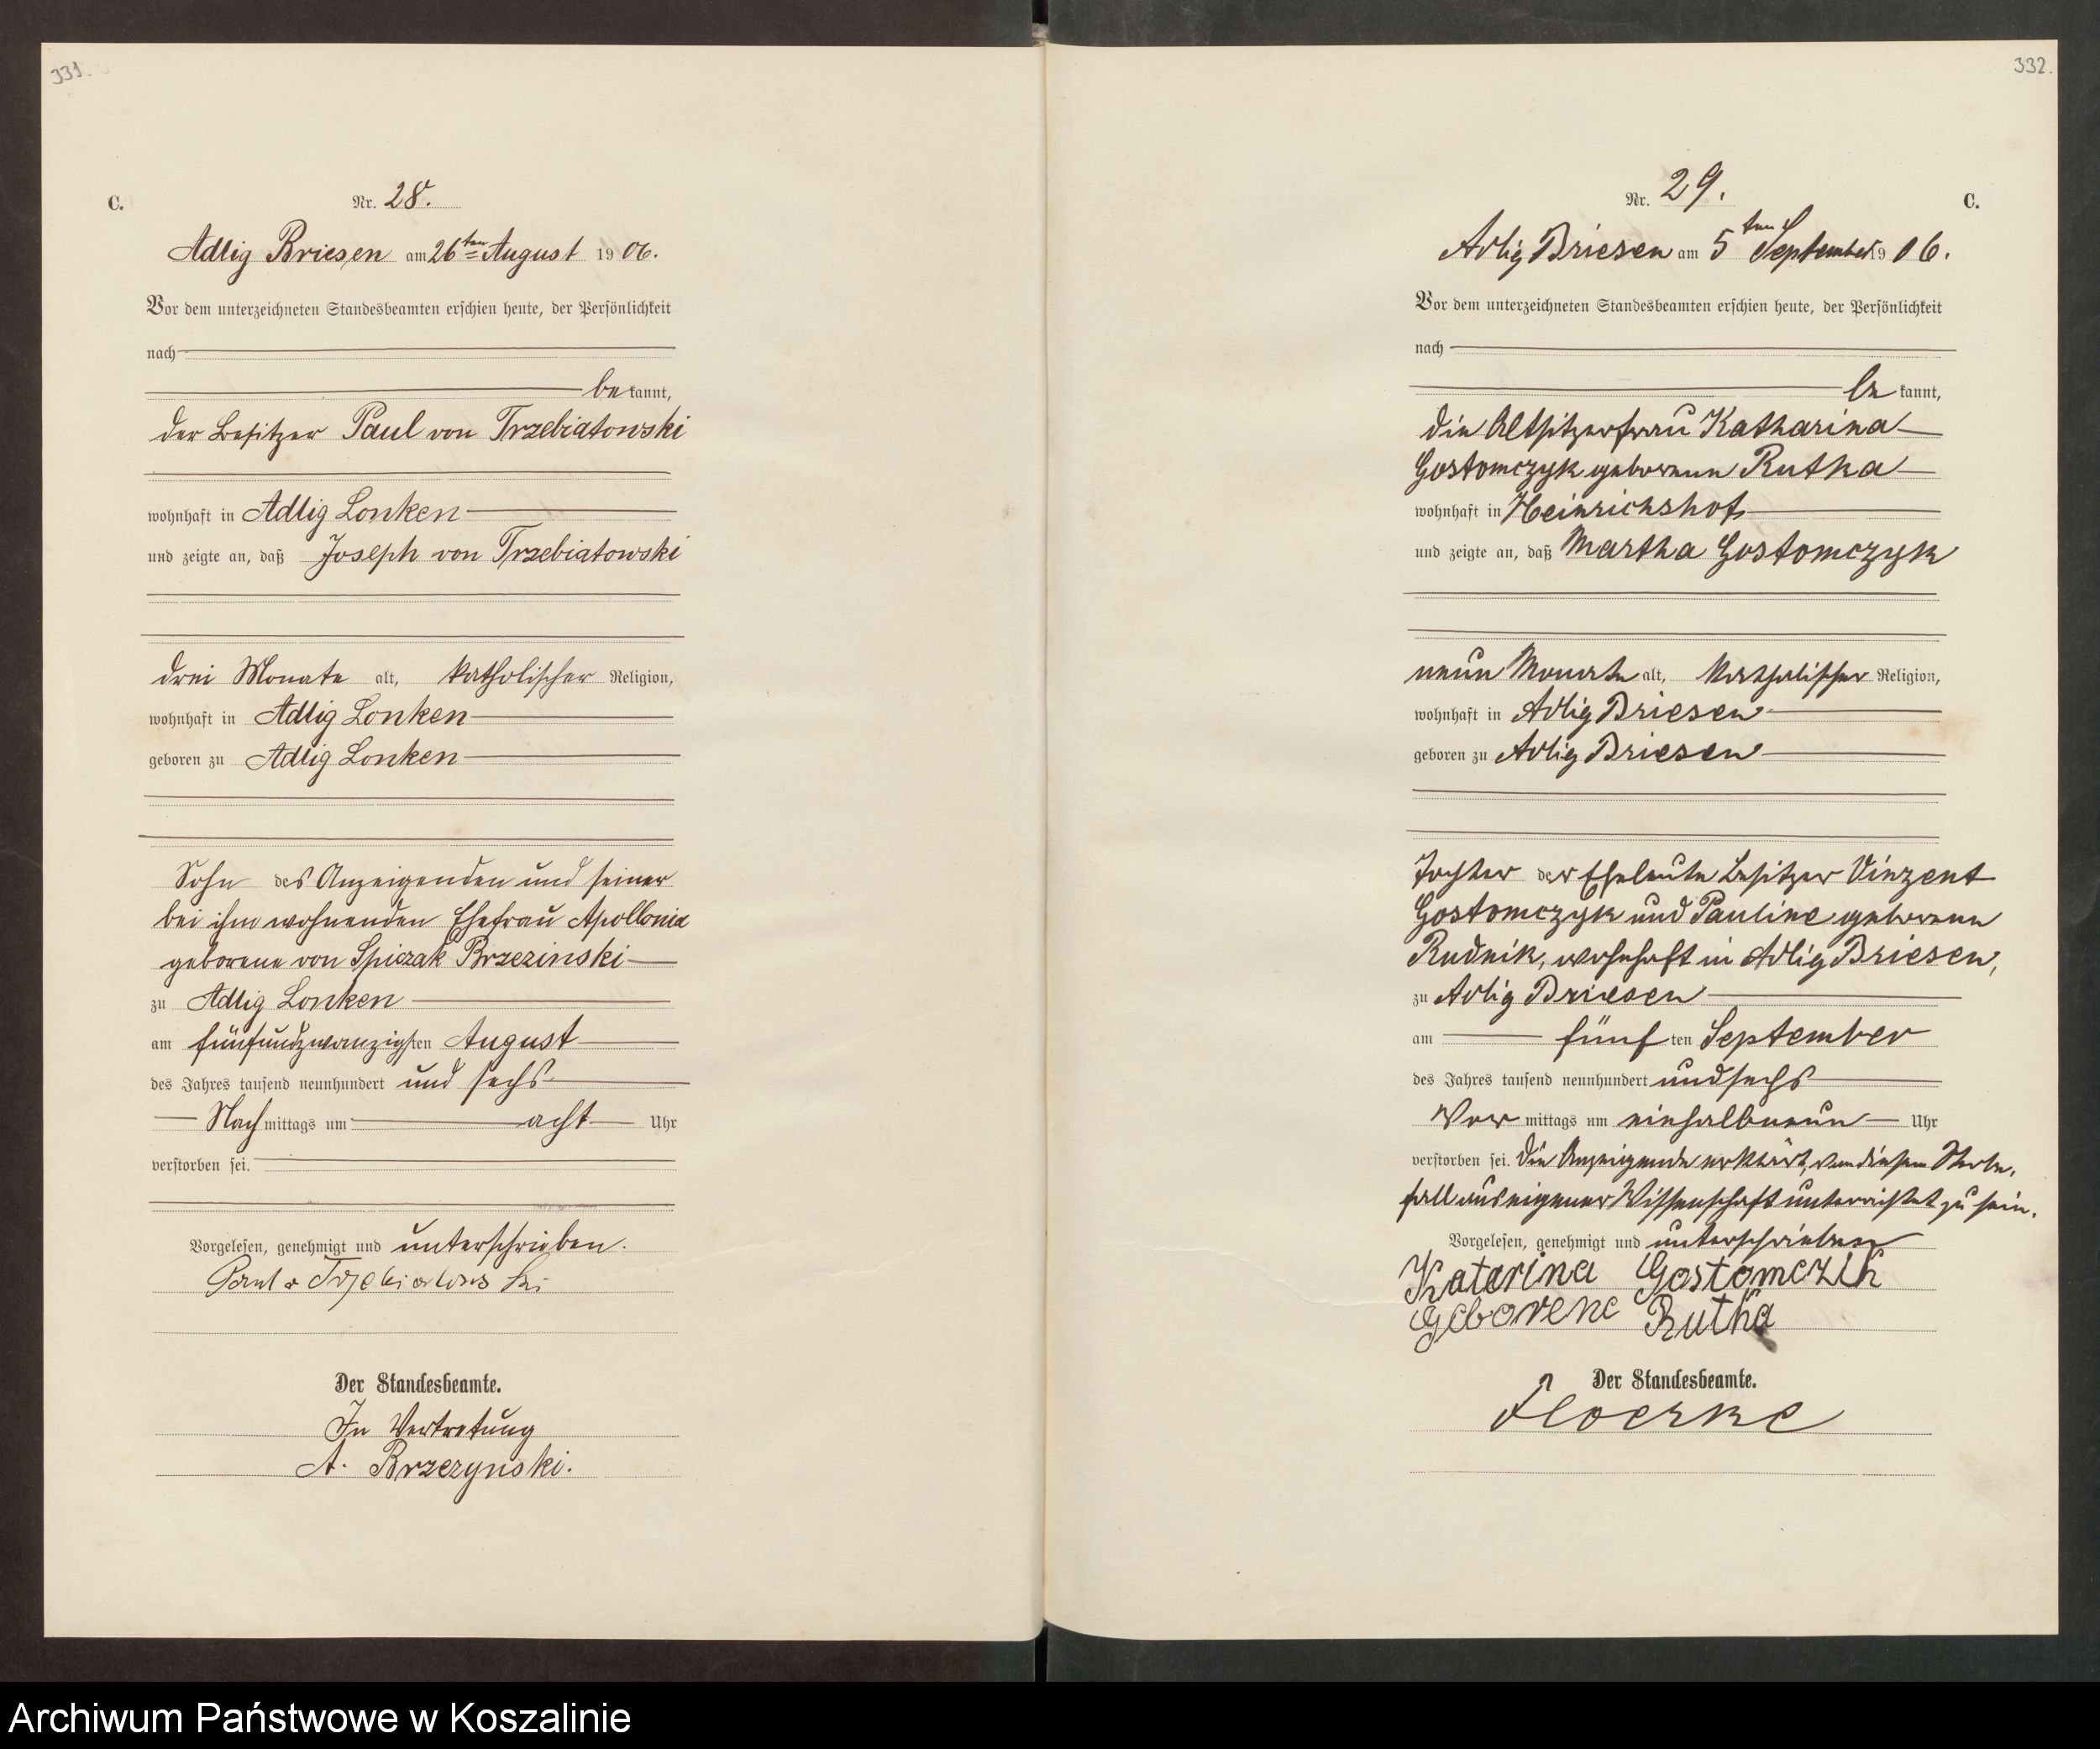 331.
C.
Nr. 28.
Adlig Briesen am 26ten August 1906.
Vor dem unterzeichneten Standesbeamten erschien heute, der Persönlichkeit
nach
bekannt,
der Besitzer Paul von Trzebiatowski
wohnhaft in Adlig Lonken
und zeigte an, daß Joseph von Trzebiatowski
drei Monate alt, katholischer Religion,
wohnhaft in Adlig Lonken
geboren zu Adlig Lonken
Sohn des Anzeigenden und seiner
bei ihm wohnenden Ehefrau Apollonia
geborene von Spiczak Brzezinski
zu Adlig Lonken
am fünfundzwanzigsten August
des Jahres tausend neunhundert und sechs
Nachmittags um acht Uhr
verstorben sei.
Vorgelesen, genehmigt und unterschrieben.
Paul v Trzebiatowski
Der Standesbeamte.
In Vertretung
A. Brzezynski.
332.
Nr. 29.
C.
Adlig Briesen am 5ten September 1906.
Vor dem unterzeichneten Standesbeamten erschien heute, der Persönlichkeit
nach
bekannt,
die Altsitzerfrau Katharina
Gostomczyk geborene Rutha
wohnhaft in Heinrichshof
und zeigte an, daß Martha Gostomczyk
neun Monate alt, katholischer Religion,
wohnhaft in Adlig Briesen
geboren zu Adlig Briesen
Tochter der Eheleute Besitzer Vinzent
Gostomczyk und Pauline geborene
Rudnik, wohnhaft in Adlig Briesen,
zu Adlig Briesen
am fünften September
des Jahres tausend neunhundert und sechs
Vormittags um einhalbneun Uhr
verstorben sei. Die Anzeigende erklärt, von diesem Sterbe-
fall aus eigener Wissenschaft unterrichtet zu sein.
Vorgelesen, genehmigt und unterschrieben
Katarina Gostomczik
Geborene Rutha
Der Standesbeamte.
Floerke
Archiwum Państwowe w Koszalinie